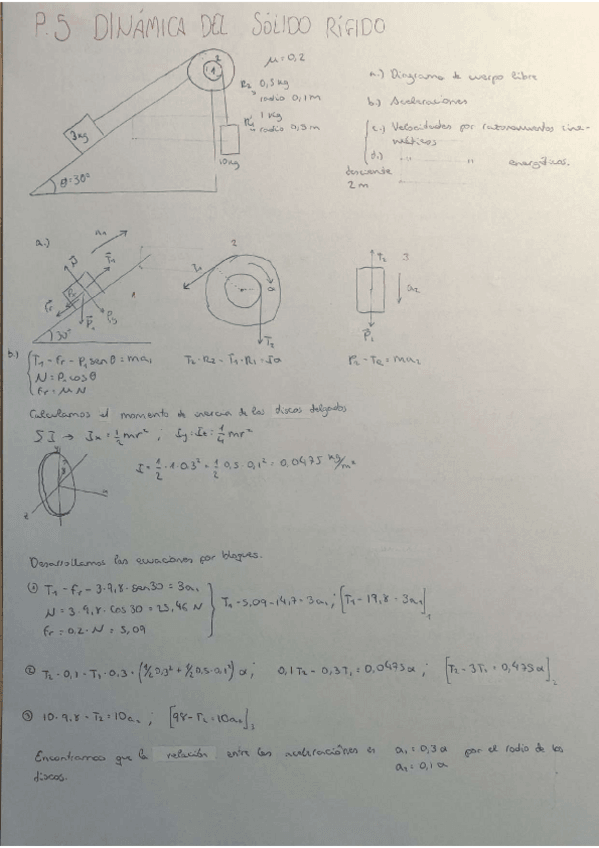 P.5 DINÁMICA DEL SÓLIDO RÍGIDO
μ = 0,2
2
1
R2 0,5 kg
radio 0,1 m
R1 1 kg
radio 0,3 m
3kg
10kg
θ=30°
a.) Diagrama de cuerpo libre
b.) Aceleraciones
c.) Velocidades por razonamientos cine-
máticos
d.) " " energéticos.
desciende
2 m
a.)
a1
N
T1
Fr
P1
30°
1
2
T1
α
T2
T2
3
a2
P1
b.)
T1 - Fr - P1 senθ = ma1
N = P1 cosθ
Fr = μ N
T2·R2 - T1·R1 = Iα
P2 - T2 = ma2
Calculamos el momento de inercia de los discos delgados
ΣI → Ix = 1/2 mr² ; Iy = Iz = 1/4 mr²
I = 1/2 · 1 · 0,3² + 1/2 0,5 · 0,1² = 0,0475 kg/m²
Desarrollamos las ecuaciones por bloques.
① T1 - Fr - 3·9,8·sen30 = 3a1
N = 3·9,8·cos30 = 25,46 N
Fr = 0,2·N = 5,09
T1 - 5,09 - 14,7 = 3a1 ; [T1 - 19,8 = 3a1]1
② T2·0,1 - T1·0,3 = (1/2 0,3² + 1/2 0,5·0,1²) α ; 0,1T2 - 0,3T1 = 0,0475α ; [T2 - 3T1 = 0,475α]2
③ 10·9,8 - T2 = 10a2 ; [98 - T2 = 10a2]3
Encontramos que la relación entre las aceleraciónes es a1 = 0,3α por el radio de los
a2 = 0,1α
discos.